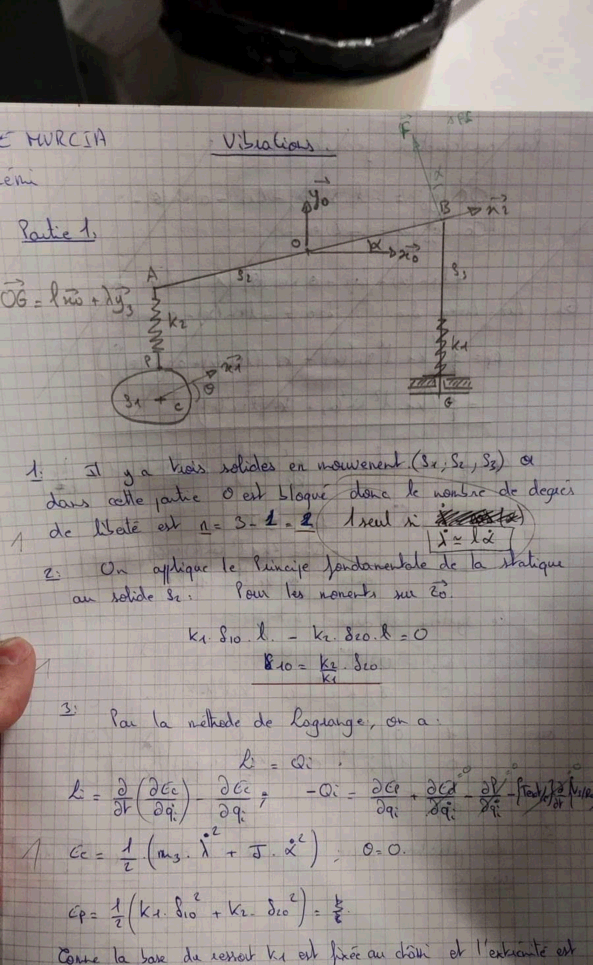 E MURCIA
Vibrations.
émi
Partie 1.
F
α
y0
B
x2
O
α
x0
A
S2
S3
OG = l x0 + λ y3
k2
k1
P
x1
θ
S1
C
G
1: Il y a trois solides en mouvement (S1, S2, S3) or
dans cette partie O est bloqué donc le nombre de degrés
de liberté est n = 3 - 1 = 2 1 seul si
λ̇ ≃ l α̇
1
2: On applique le Principe fondamentale de la statique
au solide S2: Pour les moments sur z0.
k1. δ10. l. - k2. δ20. l = 0
1
δ10 = k2/k1 . δ20
3: Par la méthode de Lagrange, on a:
Li = Qi
Li = ∂/∂t (∂Ec/∂q̇i) - ∂Ec/∂qi ; -Qi = ∂Ep/∂qi + ∂Ed/∂q̇i = 0 - ∂P/∂q̇i = 0
1
Ec = 1/2 . (m3. λ̇² + J. α̇²) ; θ = 0.
Ep = 1/2 (k1. δ10² + k2. δ20²) =
Comme la base du ressort k1 est fixée au châssi et l'extrémité est